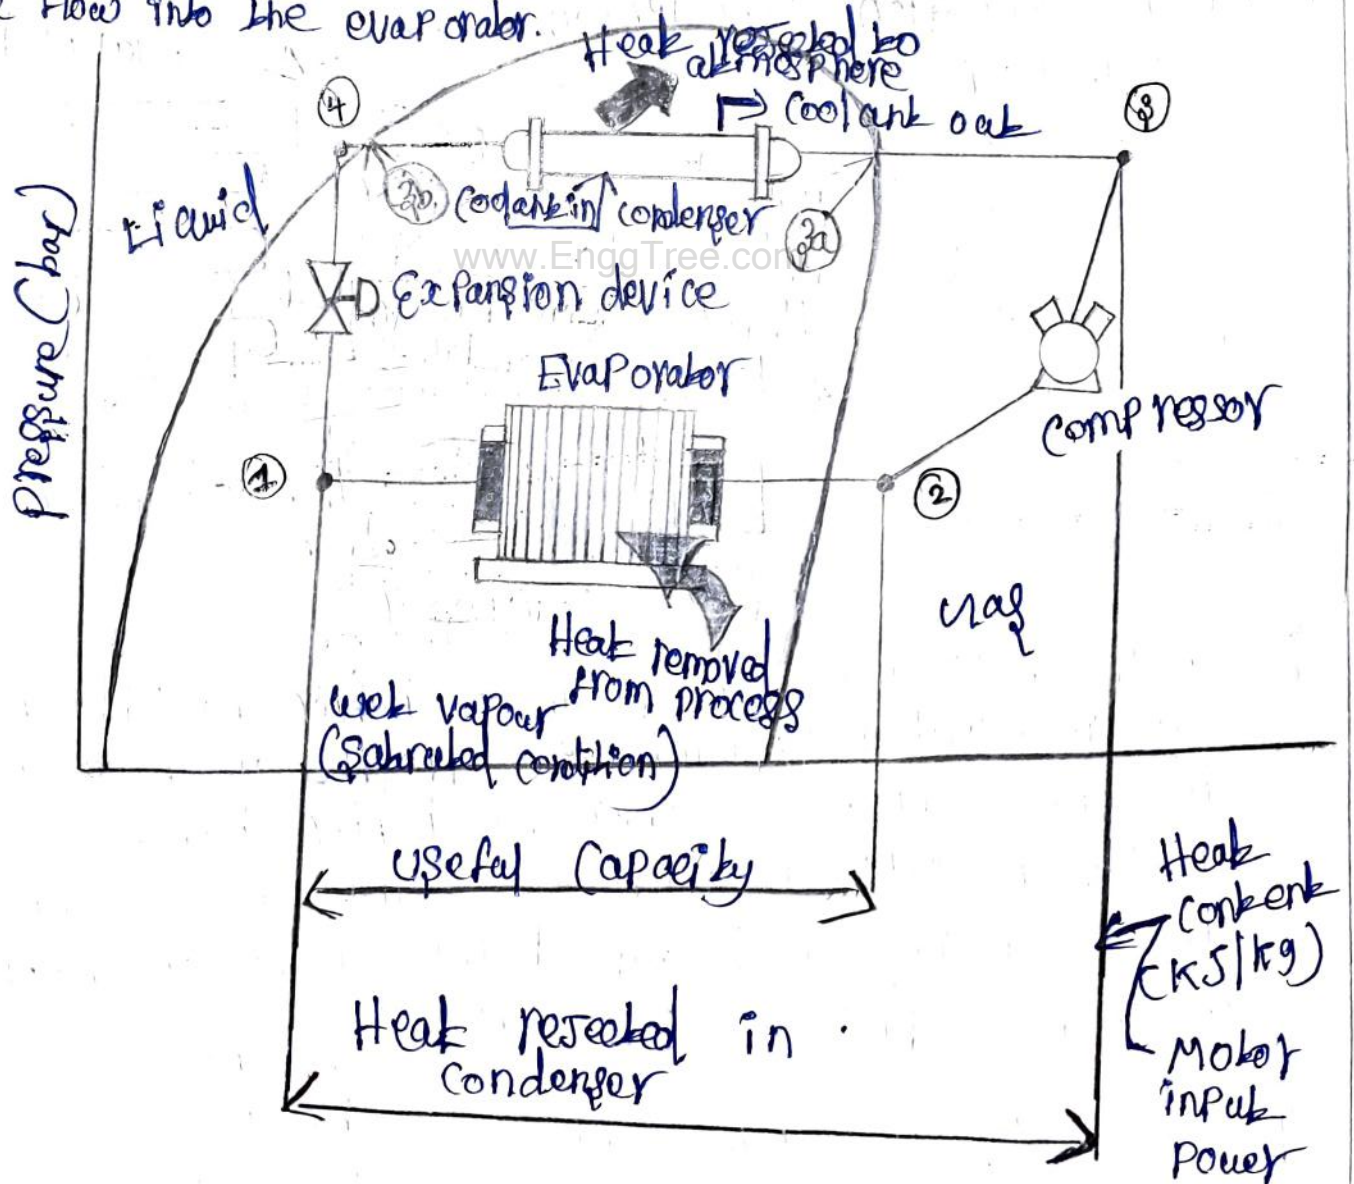 Flow into the evaporator.
Heat rejected to
atmosphere
Coolant out
4
3
3b
Coolant in condenser
3a
Liquid
www.EnggTree.com
Expansion device
Pressure (bar)
Evaporator
Compressor
1
2
Gas
Heat removed
from process
Wet vapour
(Saturated condition)
Useful Capacity
Heat
content
(KJ/kg)
Heat rejected in
condenser
Motor
input
power